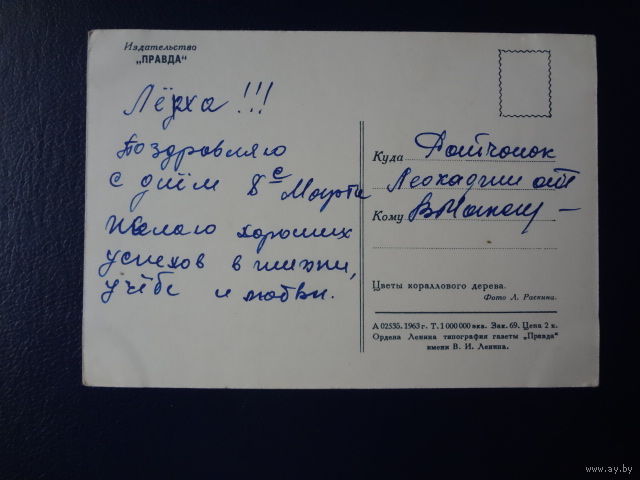 Издательство
„ПРАВДА“
Лёрха!!!
Поздравляю
с днём 8с Марта
Желаю хороших
успехов в жизни,
учёбе и любви.
Куда
Леокадии от
Кому
Цветы кораллового дерева.
Фото Л. Раскина.
А 02535. 1963 г. Т. 1 000 000 экз. Зак. 69. Цена 2 к.
Ордена Ленина типография газеты „Правда“
имени В. И. Ленина.
www.ay.by